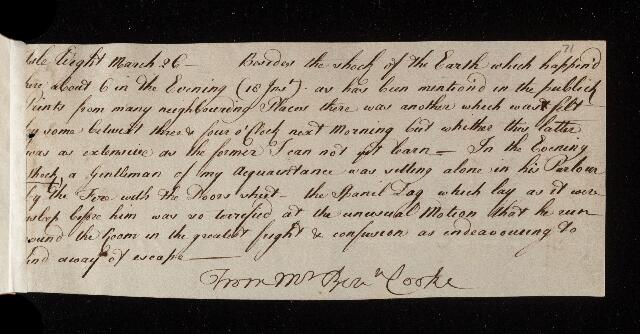 71
Isle Wight March 26 — Besides the shock of the Earth which happin'd
here, about 6 in the Evening (18 Inst) as has been mention'd in the publick
Prints from many neighbouring Places there was another which was felt
by some betwixt three & four o'Clock next Morning but whether this latter
was as extensive as the former I can not yet learn — In the Evening
shock, a Gentleman of my Acquaintance was sitting alone in his Parlour
by the Fire with the Doors shut — the Spanel Dog which lay as it were
asleep before him was so terrefied at the unusual Motion that he run
round the Room in the greatest fright & confusion as indeavouring to
find a way of escape —
From Mr Benn Cooke